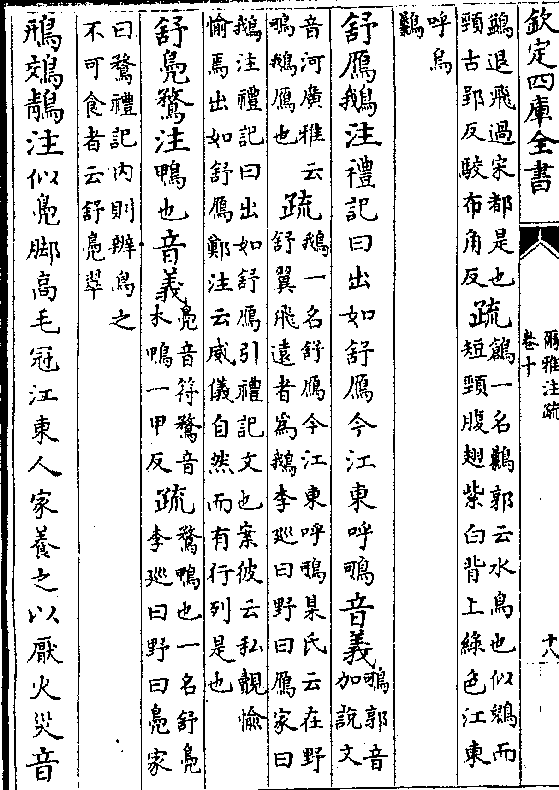 欽定四庫全書
爾雅注疏
卷十
十八
鷁退飛過宋都是也疏鷉一名鸏郭云水鳥也似鷁而
頸古郢反駮布角反短頸腹翅紫白背上綠色江東
呼烏
鸔
舒鴈鵝注禮記曰出如舒鴈今江東呼䳘音義䳘郭音
加說文
音河廣雅云
䳘鵝鴈也疏鵝一名舒鴈今江東呼䳘某氏云在野
舒翼飛遠者為鵝李廵曰野曰鴈家曰
鵝注禮記曰出如舒鴈引禮記文也案彼云私覿愉
愉焉出如舒鴈鄭注云威儀自然而有行列是也
舒鳬鶩注鴨也音義鳬音符鶩音
木鴨一甲反疏鶩鴨也一名舒鳬
李廵曰野曰鳬家
曰鶩禮記内則辨鳥之
不可食者云舒鳬翠
鳽鵁鶄注似鳬脚高毛冠江東人家養之以厭火災音